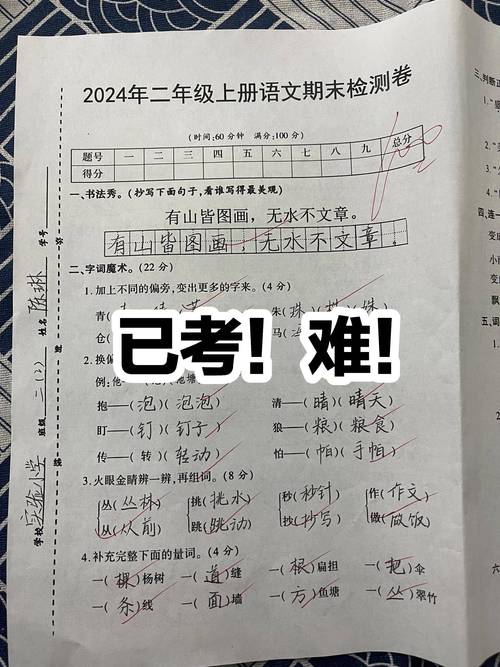 2024年二年级上册语文期末检测卷
(时间:60分钟 满分:100分)
题号 一 二 三 四 五 六 七 八 九 总分
得分
100
一、书法秀。(抄写下面句子,看谁写得最美观)
有山皆图画,无水不文章。
有山皆图画,无水不文章.
二、字词魔术。(22分)
1.加上不同的偏旁,变出更多的字来。(4分)
青(
朱(珠)( )(姝)
仓(
马(
已考!难!
2.换偏
例:他—( )(池塘
抱—(泡)(泡泡)
清—(晴)(晴天)
盯—(钉)(钉子)
狼—(粮)(粮食)
传—(转)(转动)
怕—(帕)(手帕)
3.火眼金睛辨一辨,再组词。(8分)
丛(丛林)
从(从前)
挑(挑水)
跳(跳动)
秒(秒针)
抄(抄写)
作(作文)
做(做饭)
4.补充完整下面的量词。(4分)
一(棵)杨树 一(道)缝 一(根)扁担 一(把)伞
一(条)线 一(面)墙 一(方)鱼塘 一(丛)翠竹
学校 实验小学 班级 二(2) 姓名 陈琳 学号
三、判断正
1.“
2.“
3.“
4.
四、连一
变成
小雨
变成
五、词
1.
2.
六